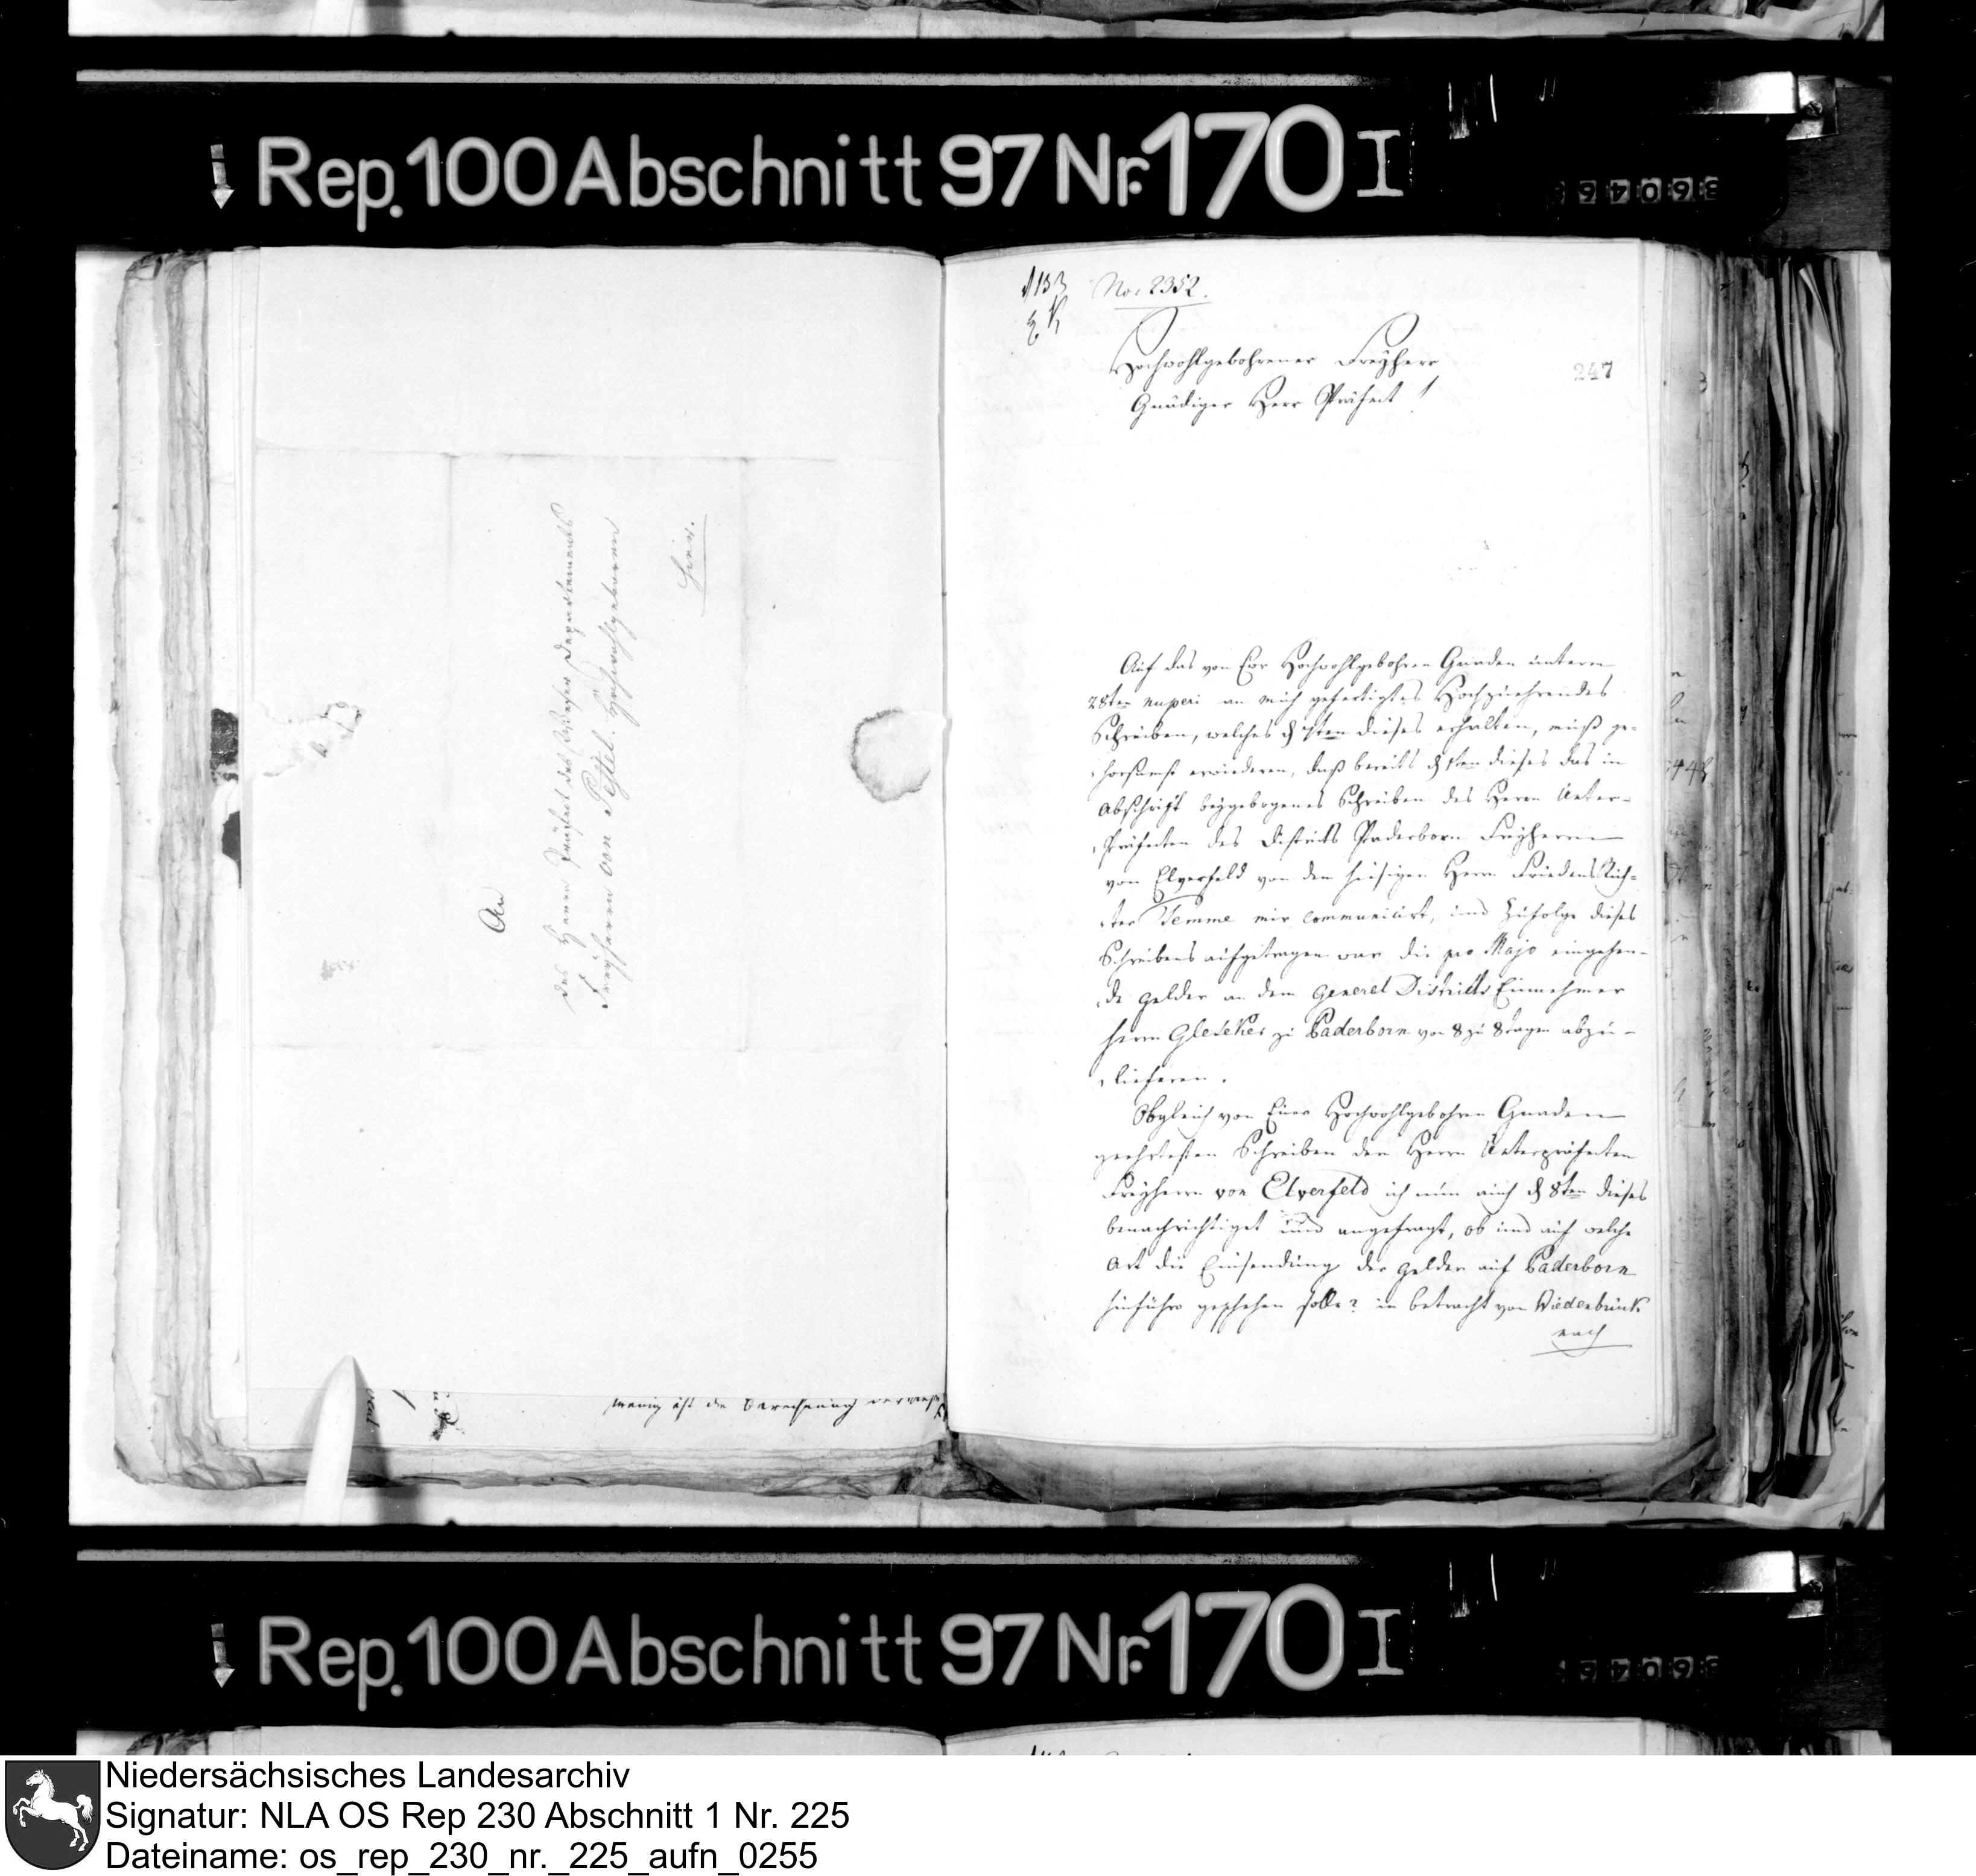 Rep. 100 Abschnitt 97 Nr. 170 I
36046
An
des Herrn Präfect des Weser Departements
Freyherrn von Pestel. Hochwohlgeboren
Hier.
wenig ist die Berechnung
No: 2352.
Hochwohlgebohrener Freyherr
Gnädiger Herr Präfect!
247
Auf das von Eur Hochwohlgebohren Gnaden unterm
28ten nuperi an mich gefertigtes Hochzuehrendes
Schreiben, welches d 1ten dieses erhalten, muß ge-
horsamst erwiederen, daß bereits d 1ten dieses das in
Abschrift beygebogenes Schreiben des Herrn Unter-
Präfecten des Districts Paderborn Freyherrn
von Elverfeld von dem hiesigen Herrn Friedens Rich-
ter Temme mir communicirt, und Zufolge dieses
Schreibens aufgetragen war die pro Majo eingehen-
de gelder an dem General Districts Einnehmer
Herrn Gleseker zu Paderborn von 8 zu 8 tagen abzu-
lieferen.
Obgleich von Euer Hochwohlgebohren Gnaden
geehrtesten Schreiben den Herrn Unterpräfecten
Freyherrn von Elverfeld ich nun auch d 8ten dieses
benachrichtiget und angefragt, ob und auf welche
Art die Einsendung der gelder auf Paderborn
hinführo geschehen solle? in betracht von Wiedenbrück
nach
Rep. 100 Abschnitt 97 Nr. 170 I
Niedersächsisches Landesarchiv
Signatur: NLA OS Rep 230 Abschnitt 1 Nr. 225
Dateiname: os_rep_230_nr._225_aufn_0255